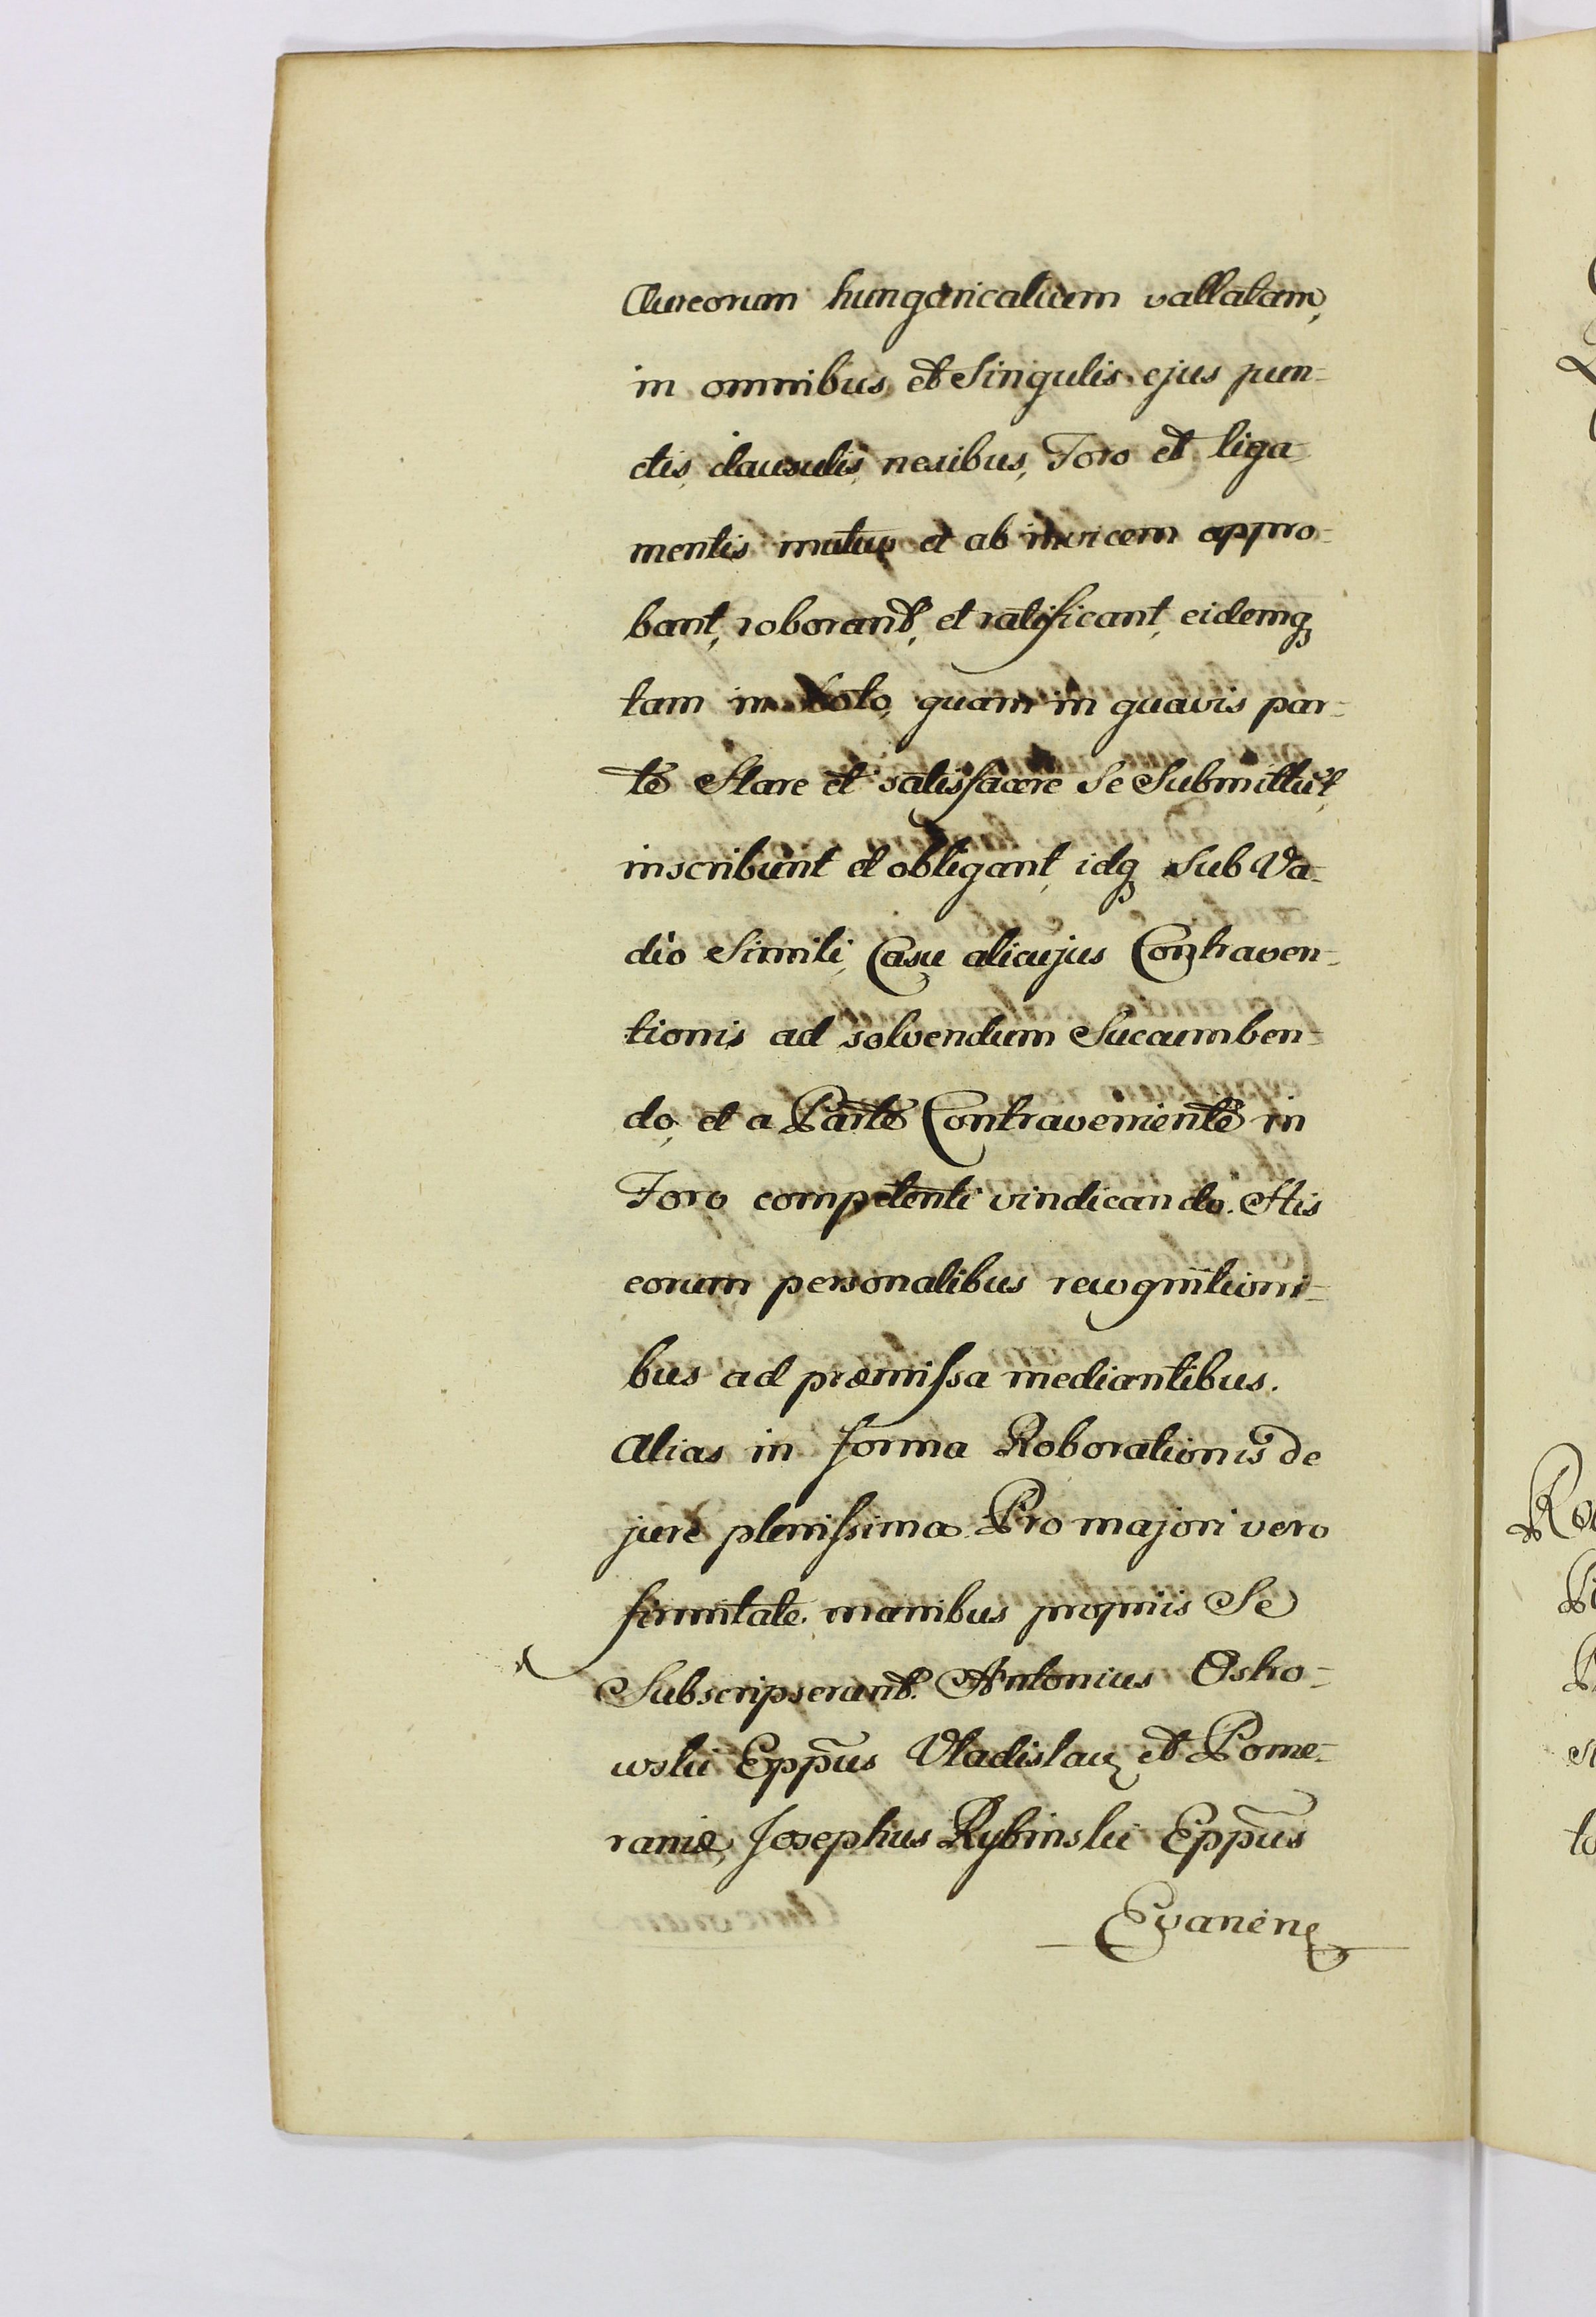 Aureorum hungaricalium vallatam,
in omnibus et Singulis ejus pun-
ctis, clausulis, nexibus, Foro et liga-
mentis mutuo et ab invicem appro-
bant, roborant, et ratificant, eidemq
tam in toto, quam in quavis par-
te Stare et satisfacere se Submittūt,
inscribunt et obligant, idq sub Va-
dio Simili, Casu alicujus Contraven-
tionis ad solvendum Sucumben-
do, et a Parte Contraveniente in
Foro competenti vindicando. His
eorum personalibus recognitioni-
bus ad præmissa mediantibus.
Alias in forma Roborationis de
jure plenissima. Pro majori vero
firmitate manibus propriis Se
Subscripserant. Antonius Ostro-
wski Eppūs Vladislav et Pome-
raniæ, Josephus Rybinski Eppūs
Evanen